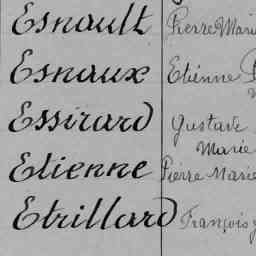 Esnault Pierre Marie
Esnaux Etienne
Essirard Gustave
Marie
Etienne Pierre Marie
Etrillard François